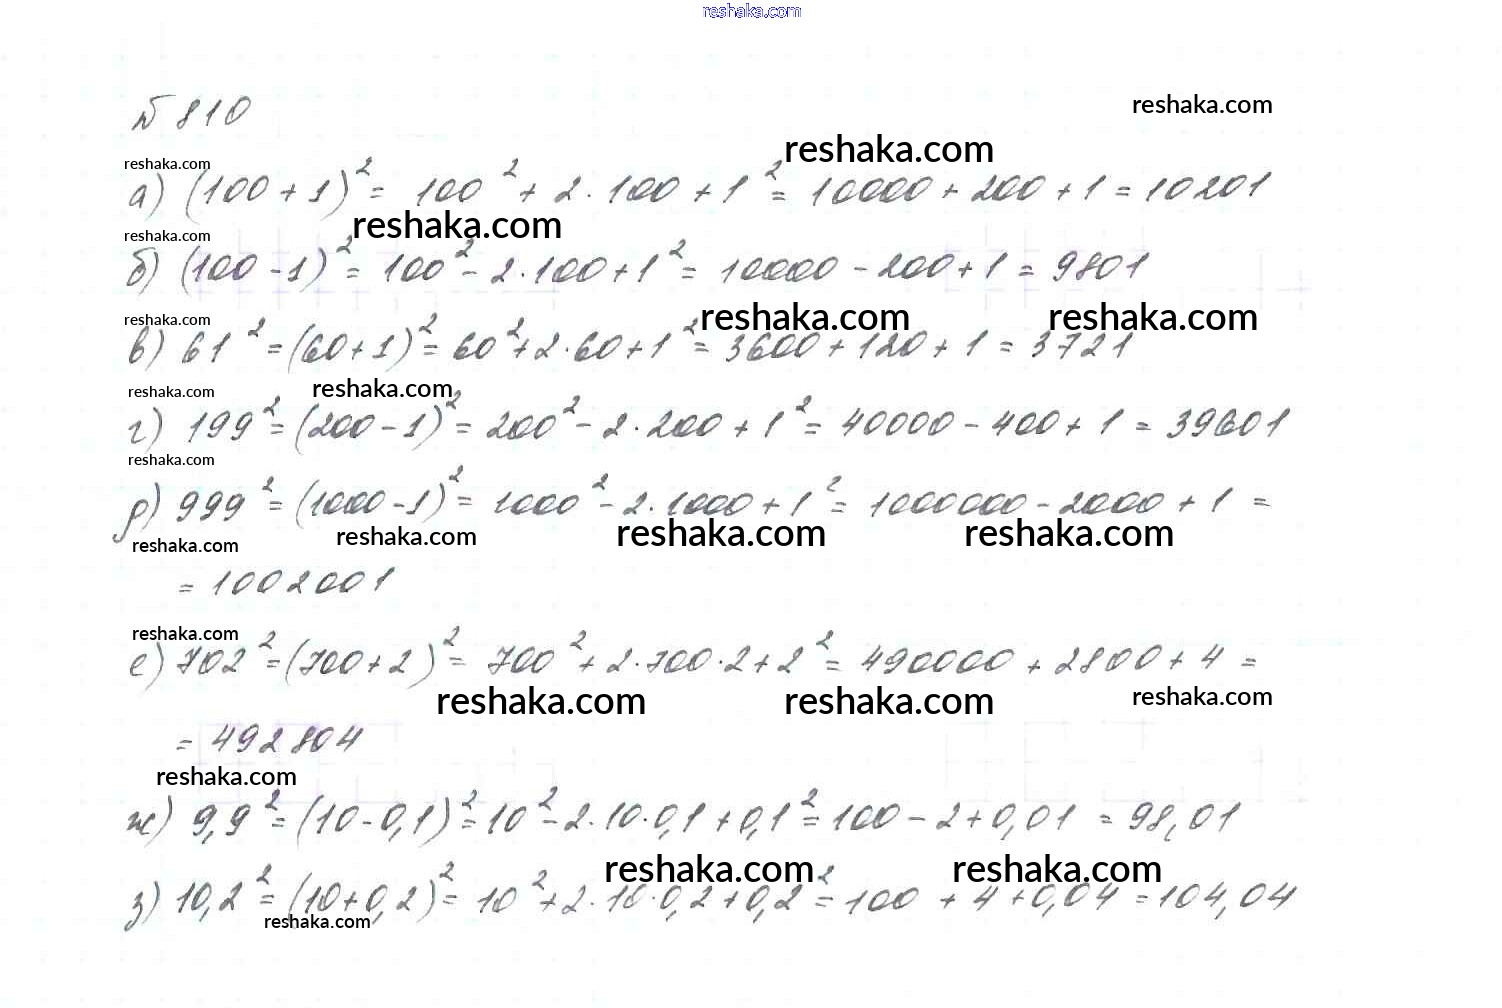 reshaka.com
№ 810
reshaka.com
reshaka.com
reshaka.com
а) (100 + 1)² = 100² + 2 · 100 + 1² = 10000 + 200 + 1 = 10201
reshaka.com
reshaka.com
б) (100 - 1)² = 100² - 2 · 100 + 1² = 10000 - 200 + 1 = 9801
reshaka.com reshaka.com reshaka.com
в) 61² = (60 + 1)² = 60² + 2 · 60 + 1² = 3600 + 120 + 1 = 3721
reshaka.com reshaka.com
г) 199² = (200 - 1)² = 200² - 2 · 200 + 1² = 40000 - 400 + 1 = 39601
reshaka.com
д) 999² = (1000 - 1)² = 1000² - 2 · 1000 + 1² = 1000000 - 2000 + 1 =
reshaka.com reshaka.com reshaka.com reshaka.com
= 1002001
reshaka.com
е) 702² = (700 + 2)² = 700² + 2 · 700 · 2 + 2² = 490000 + 2800 + 4 =
reshaka.com reshaka.com reshaka.com
= 492804
reshaka.com
ж) 9,9² = (10 - 0,1)² = 10² - 2 · 10 · 0,1 + 0,1² = 100 - 2 + 0,01 = 98,01
reshaka.com reshaka.com
з) 10,2² = (10 + 0,2)² = 10² + 2 · 10 · 0,2 + 0,2² = 100 + 4 + 0,04 = 104,04
reshaka.com